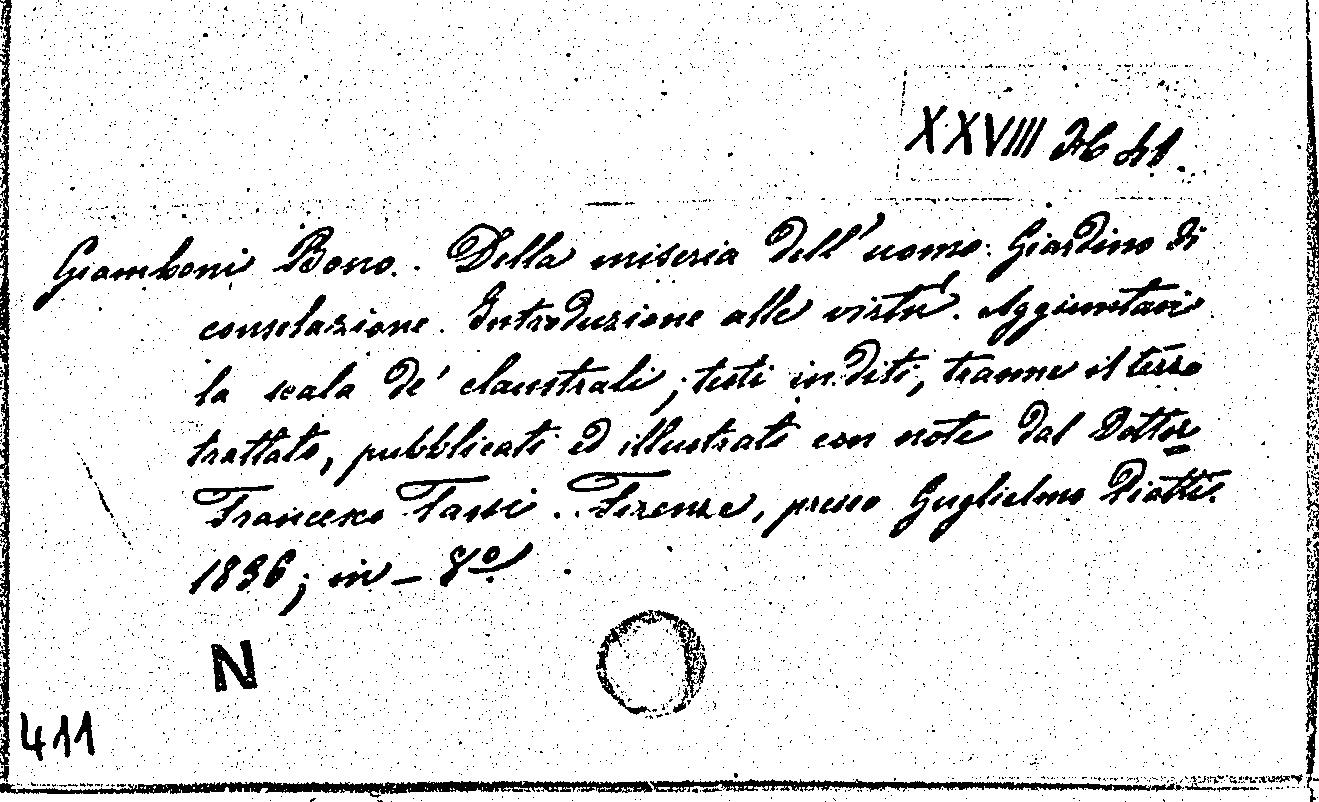 XXVIII Ab 41.
Giamboni Bono. Della miseria dell'uomo. Giardino di
consolazione. Introduzione alle virtù. Aggiuntavi
la scala de' claustrali; testi inediti, tranne il terzo
trattato, pubblicati ed illustrati con note dal Dottor
Francesco Tassi. Firenze, presso Guglielmo Piatti.
1836; in-8º
N
411